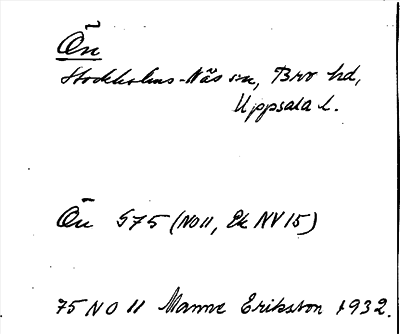 Ön
Stockholms-Näs sn, Bro hd,
Uppsala l.
Ön S75 (NO11, Ek NV15)
75 NO 11 Manne Eriksson 1932.